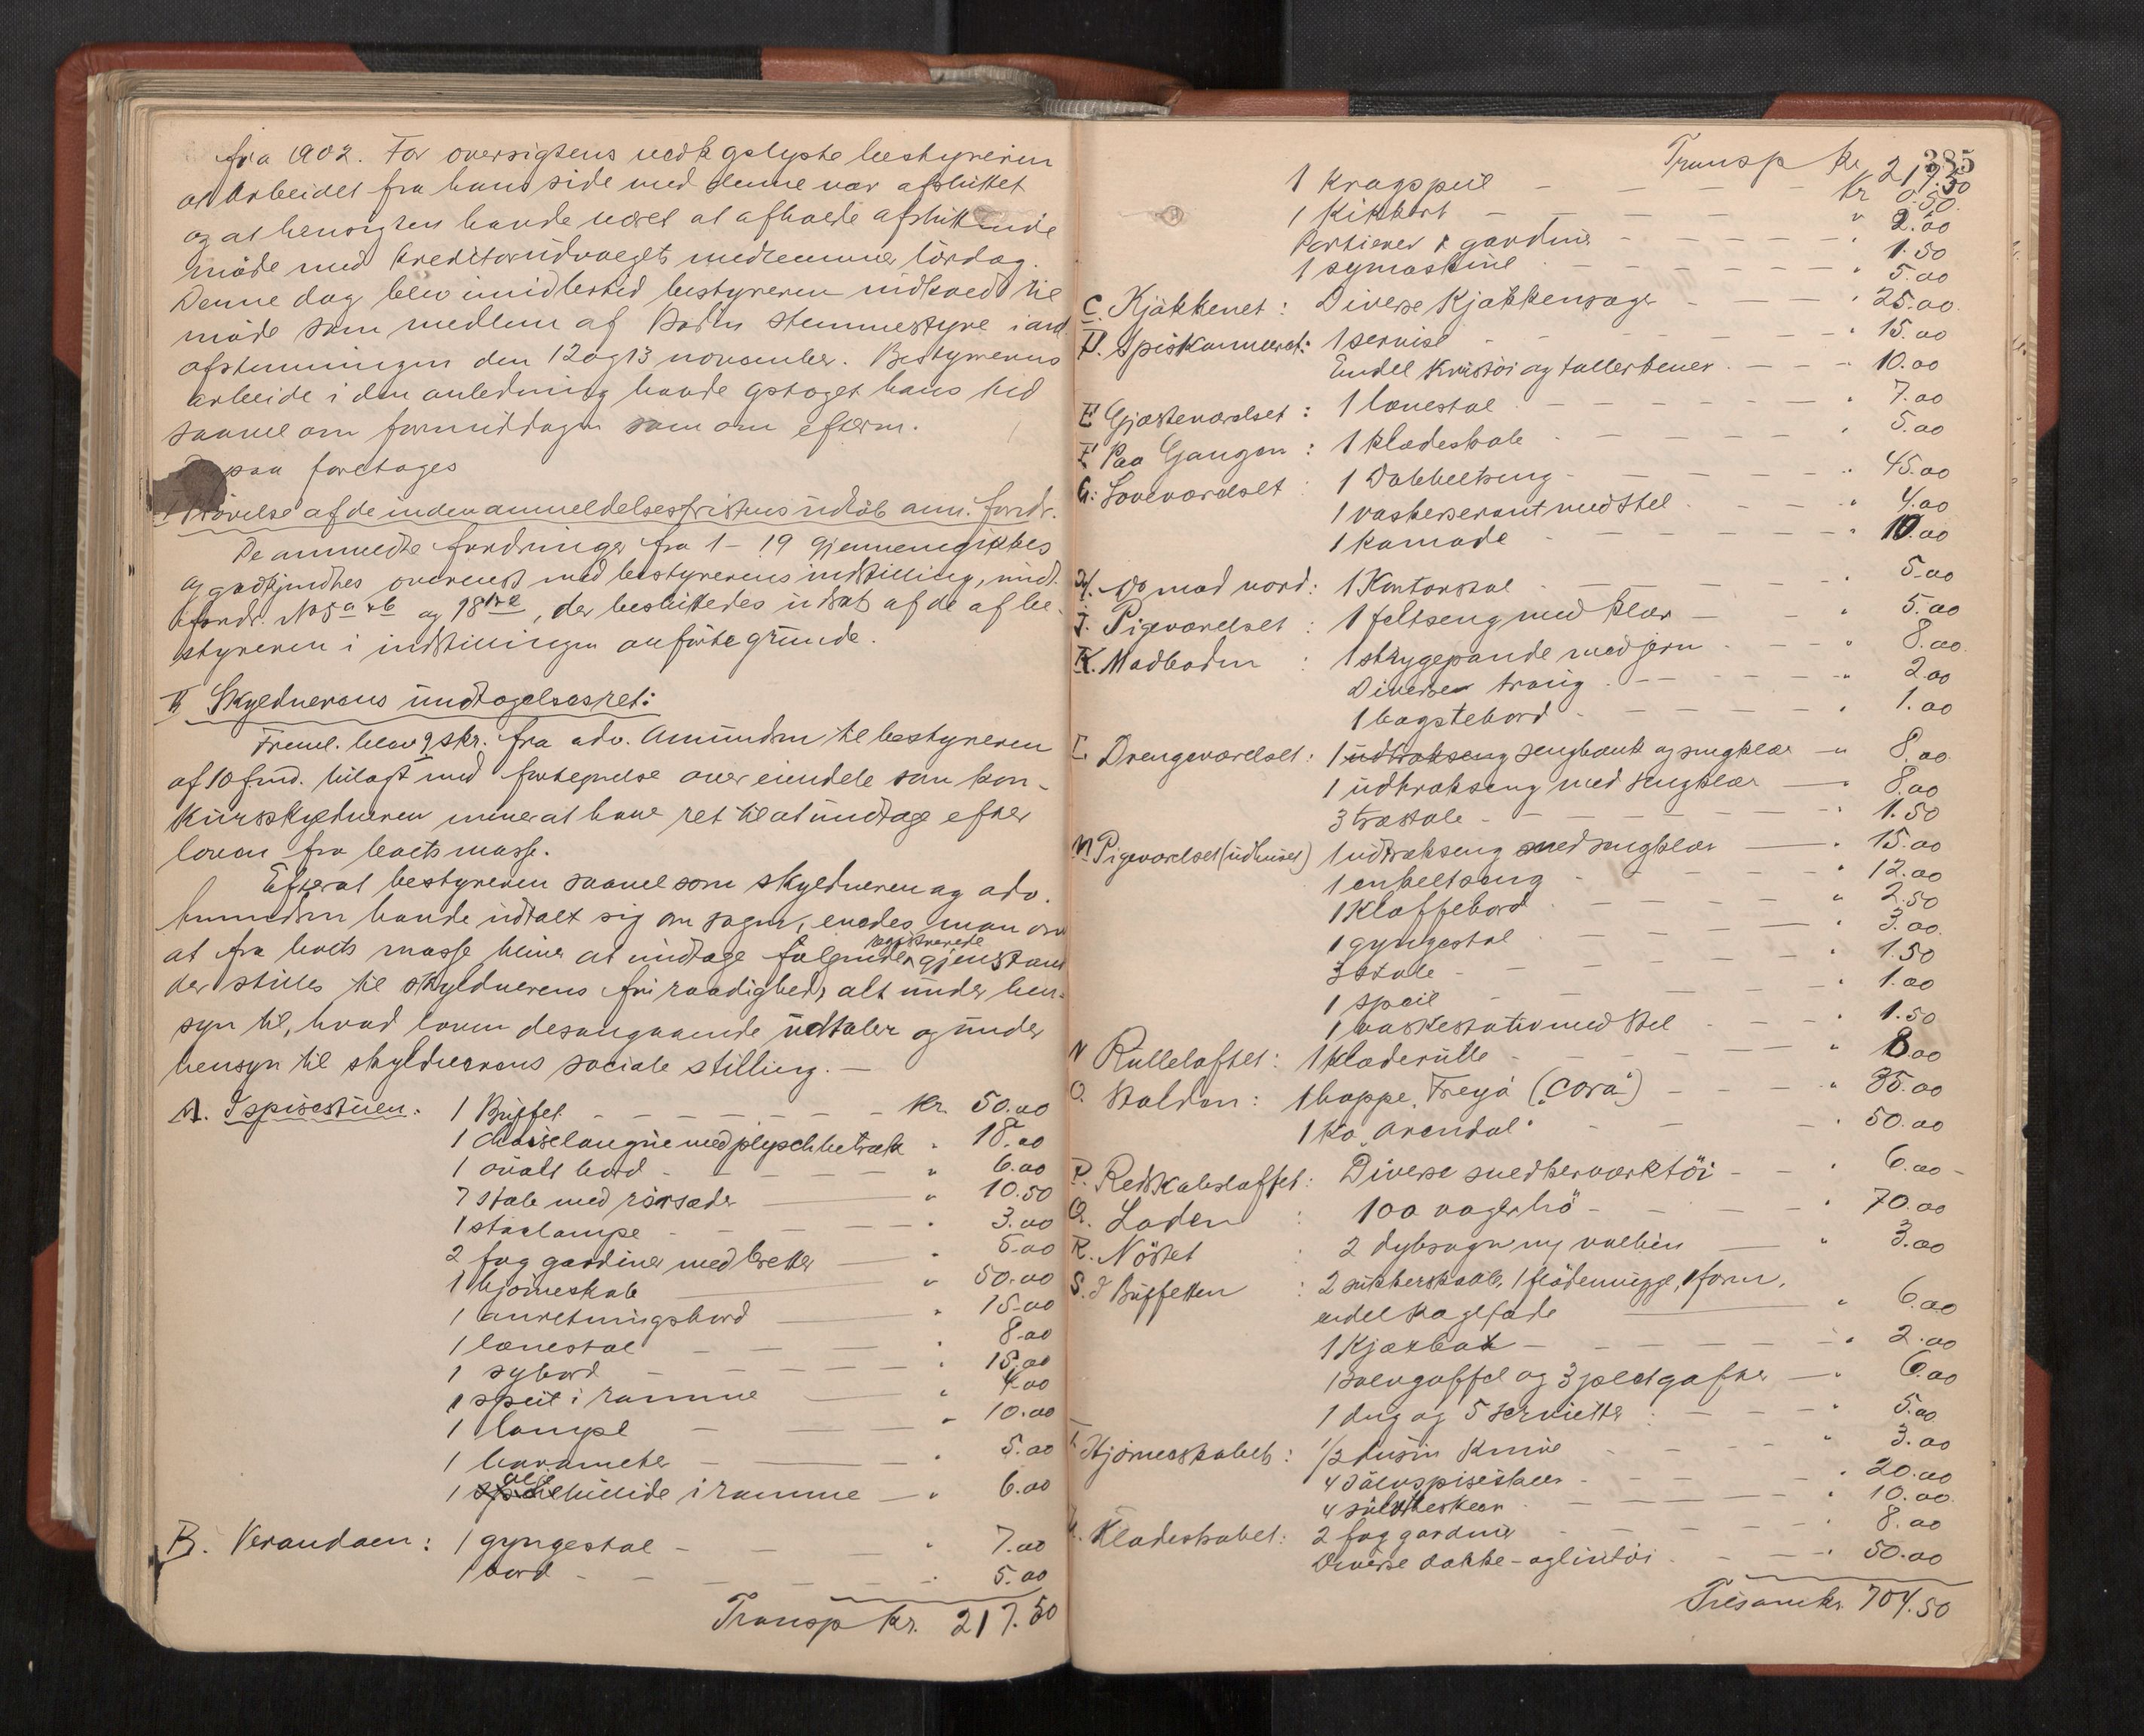 fra 1902. For oversigtens vedk gslyste bestyreren
at arbeidet fra hans side med denne var afsluttet
og at hensigten havde været at afholde afsluttende
møde med kreditorudvalgets medlemmer lördag.
Denne dag blev imidlertid bestyreren indkaldt til
møde som medlem af Bodin stemmestyre i anl.
afstemningen den 12 og 13 november. Bestyrerens
arbeide i den anledning havde gstaget hans tid
saavel om formiddagen som om efterm.
paa foretoges
Prövelse af de inden anmeldelsesfristens udlöb anm. fordr.
De anmeldte fordringer fra 1 - 19 gjennemgikkes
og godkjendtes overenst med bestyrerens indstilling, undt.
fordr. No 5 a & b og 18, der besluttedes udsat af de af be-
styreren i indstillingen anförte grunde.
II Skyldnerens undtagelsesret:
Freml. blev 9 skr. fra adv. Amundsen til bestyreren
af 10 f.md. bilagt med fortegnelse over eiendele som kon-
kursskyldneren mener at have ret til at undtage efter
loven fra boets masse.
Efterat bestyreren saavel som skyldneren og adv.
Amundsen havde udtalt sig om sagen, enedes man om
at fra boets masse bliver at undtage følgende registrerede gjenstan
der stilles til skyldnerens fri raadighed, alt under hen-
syn til, hvad loven desangaaende udtaler og under
hensyn til skyldnerens sociale stilling. —
A. I spisestuen: 1 Büffet - - - - kr. 50.00
1 chaiselongue med plyschbetræk " 18.00
1 ovalt bord - - - " 6.00
7 stole med rörsæder — " 10.50
1 staalampe - - - " 3.00
2 fag gardiner med bretter — " 5.00
1 hjörneskab — " 50.00
1 anretningsbord — " 15.00
1 lænestol - - - " 8.00
1 sybord - - - " 15.00
1 speil i ramme — " 4.00
1 lampe — " 10.00
1 barometer — " 5.00
1 oljebillede i ramme — " 6.00
B. Verandaen: 1 gyngestol - - - " 7.00
1 bord - - - " 5.00
Transp kr. 217.50
385
Transp kr 217.50
1 kragspeil - - - kr 0.50
1 kikkert - - - " 2.00
Portierer & gardiner - - - " 1.50
1 symaskine - - - " 5.00
C. Kjøkkenet: Diverse Kjøkkensager - - - " 25.00
D. Spiskammeret: 1 servise - - - " 15.00
Endel kristöi og tallerkener - - - " 10.00
E Gjæsteværelset: 1 lænestol - - - " 7.00
F Paa Gangen: 1 klædeskab - - - " 5.00
G. Soveværelset: 1 Dobbeltseng - - - " 45.00
1 vaskeservant med stel - - - " 4.00
1 komode - - - " 10.00
H. Do mod nord: 1 Kontorstol - - - " 5.00
J. Pigeværelset: 1 feltseng med klær - - - " 5.00
K. Madboden: 1 strygepande med jern - - - " 8.00
Diverse traug - - - " 2.00
1 bagstebord - - - " 1.00
L Drengeværelset: 1 udtrækseng sengbænk og sengklær — " 8.00
1 udtrækseng med sengklær — " 8.00
3 træstole - - - " 1.50
M Pigeværelset (udhuset) 1 udtrækseng med sengklær — " 15.00
1 enkeltseng - - - " 12.00
1 Klaffebord - - - " 2.50
1 gyngestol - - - " 3.00
3 stole - - - " 1.50
1 speil - - - " 1.00
1 vaskestativ med stel - - - " 1.50
N Rulleloftet: 1 klæderulle - - - " 8.00
O. Stalden: 1 hoppe "Freya" ("Cora") - - - " 35.00
1 ko "Arendal" - - - " 50.00
P. Redskabsloftet: Diverse snedkerværktöi - - " 6.00
Q. Laden: 100 voger hö - - - " 70.00
R. Nöstet: 2 dybsagn — " 3.00
S. I Büffetten: 2 sukkerskaale, 1 flödemugge, 1 form,
endel kagefade — " 6.00
1 Kjæxbox - - - " 2.00
1 solvgaffel og 3 pletgafler — " 6.00
1 dug og 5 servietter: - - - " 5.00
T Hjörneskabet: 1/2 dusin knive - - - " 3.00
4 sölvspiseskeer - - - " 20.00
4 sölvtheskeer - - - " 10.00
U. Klædeskabet: 2 fag gardiner - - - " 8.00
Diverse dække- og lintöi - - - " 50.00
Tilsam kr. 704.50